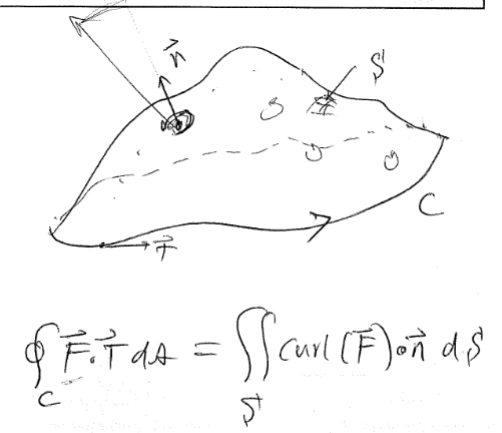 n⃗
S
C
T⃗
∮_C F⃗·T⃗ ds = ∬_S curl(F⃗)·n⃗ dS